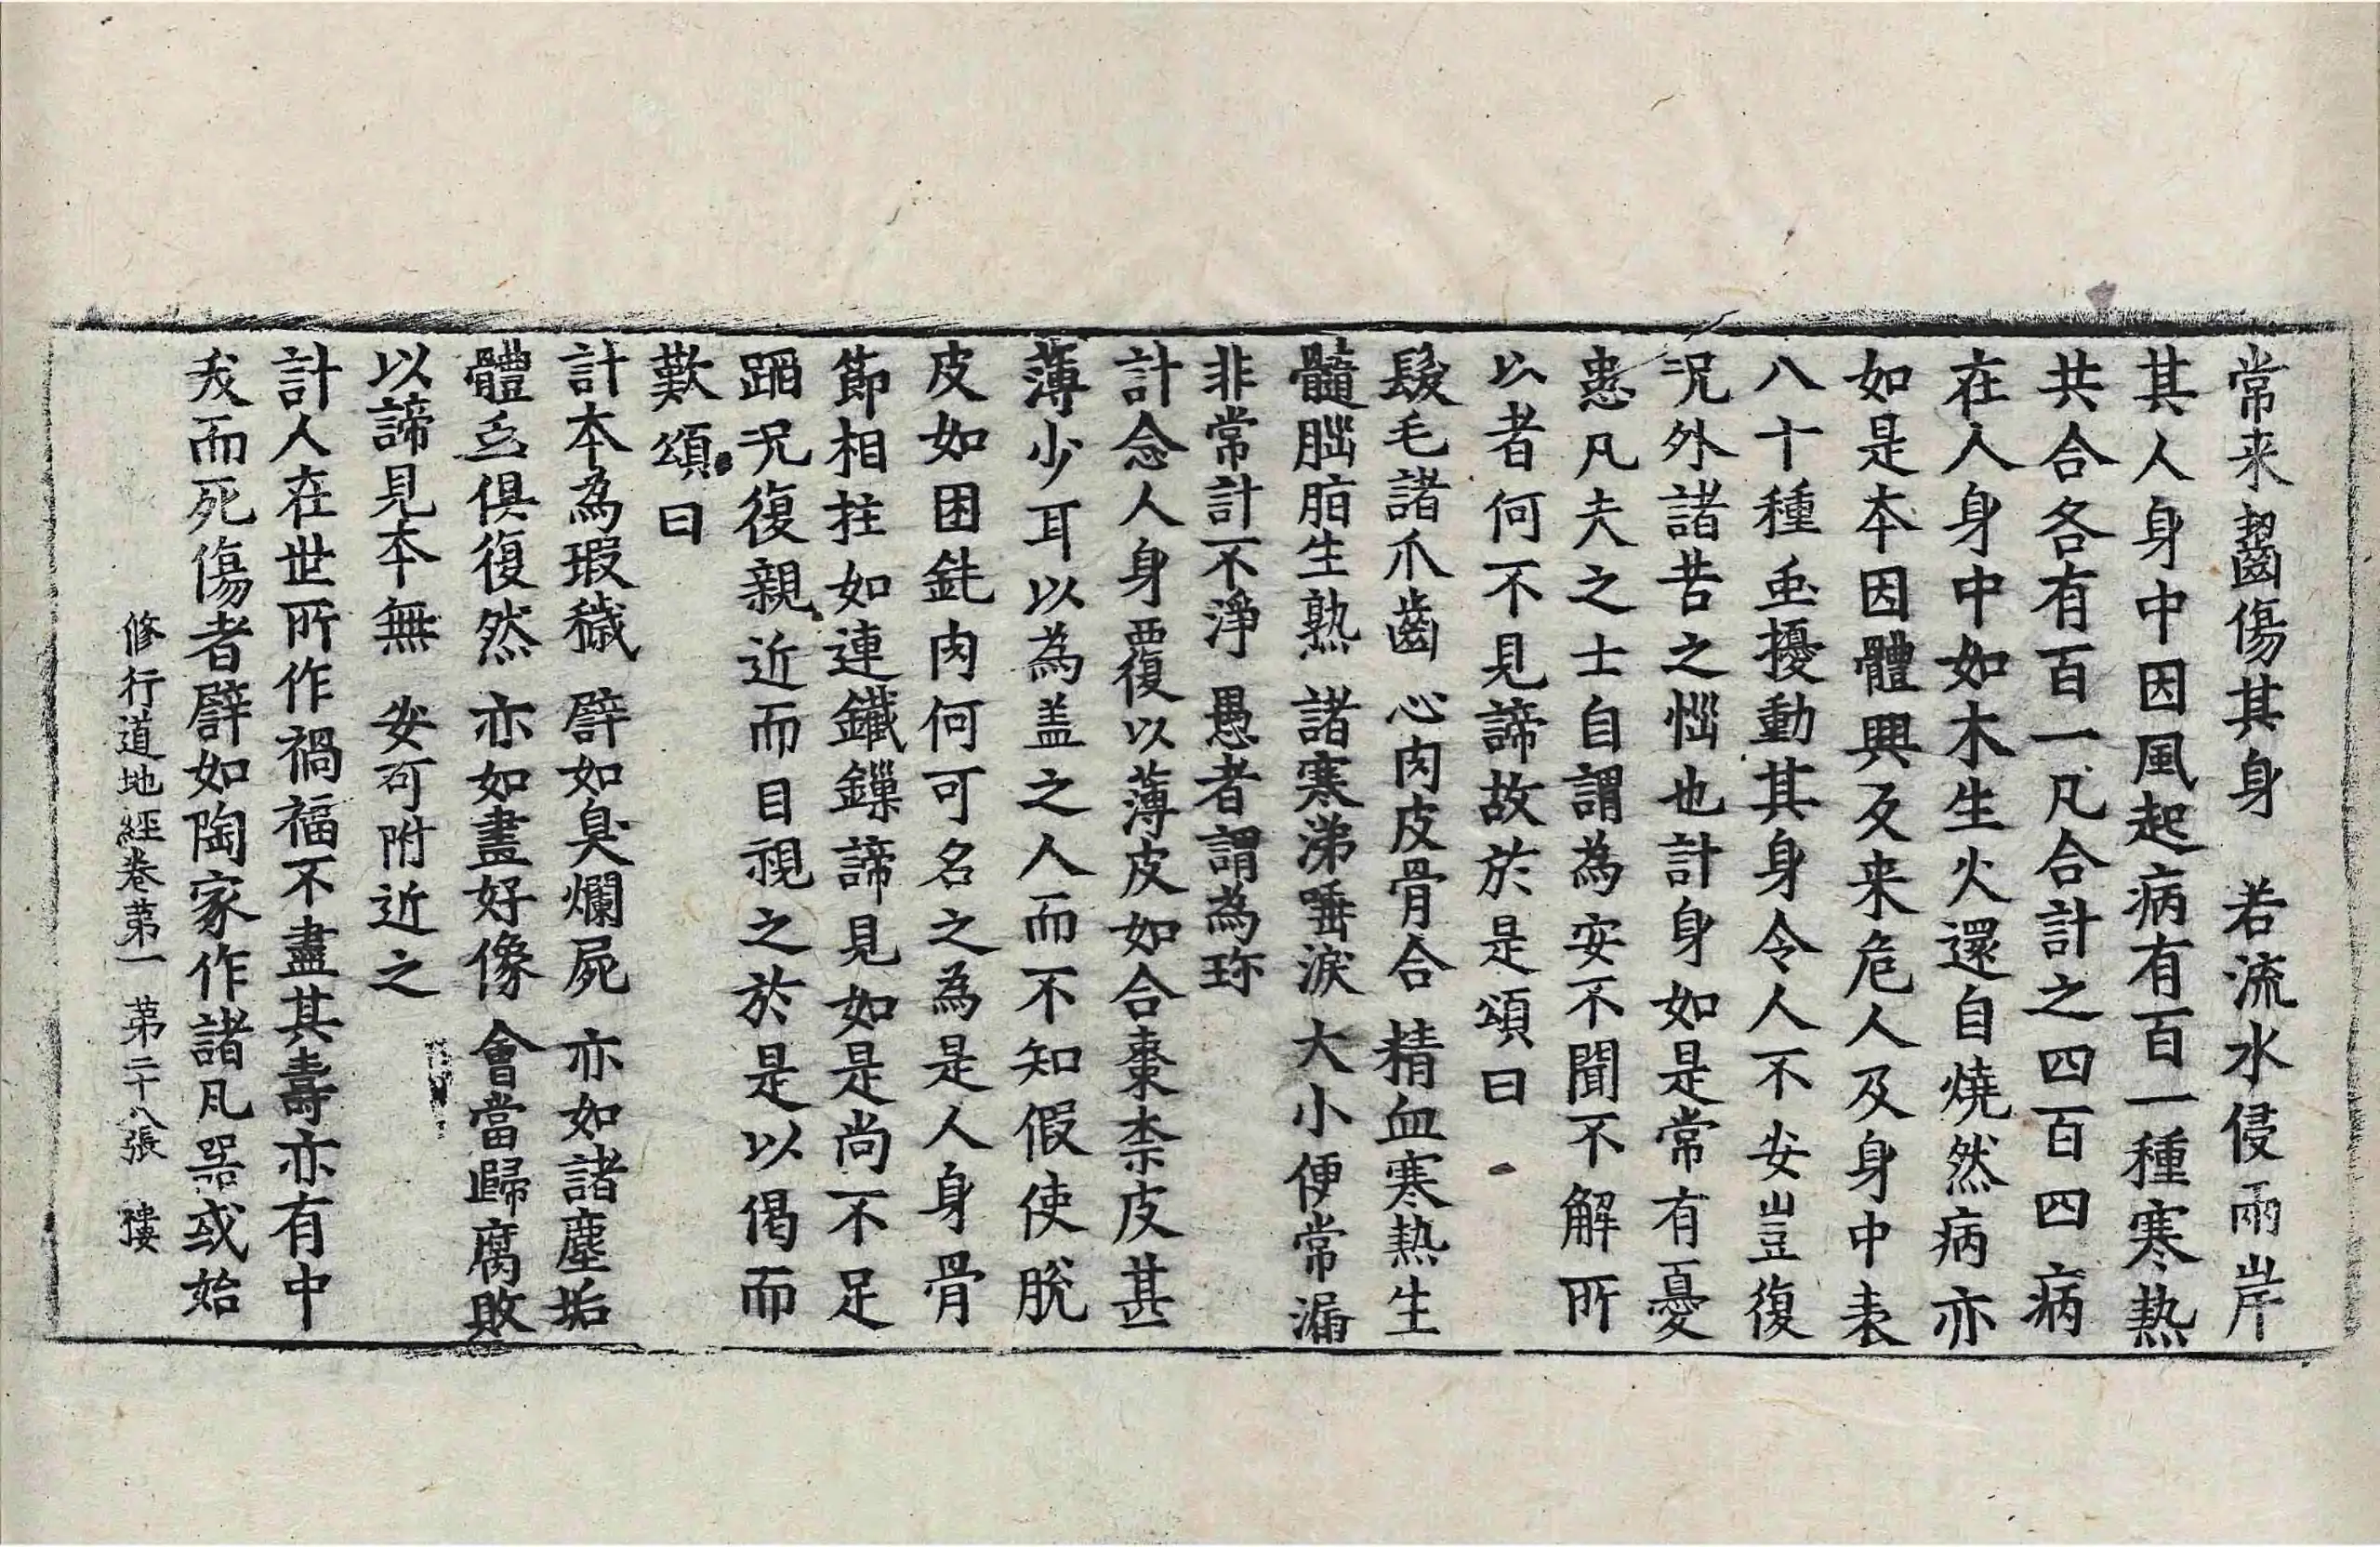 常来齧傷其身　若流水侵兩岸
其人身中因風起病有百一種寒熱
共合各有百一凡合計之四百四病
在人身中如木生火還自燒然病亦
如是本因體興反来危人及身中表
八十種䖝擾動其身令人不安豈復
况外諸苦之惱也計身如是常有憂
患凡夫之士自謂為安不聞不解所
以者何不見諦故於是頌曰
髮毛諸爪齒　心肉皮骨合　精血寒熱生
髓腦脂生熟　諸寒涕唾淚　大小便常漏
非常計不淨　愚者謂為珎
計念人身覆以薄皮如合棗柰皮甚
薄少耳以為盖之人而不知假使脫
皮如困鈋肉何可名之為是人身骨
節相拄如連鐵鏁諦見如是尚不足
蹈况復親近而目視之於是以偈而
歎頌曰
計本為瑕穢　譬如臭爛屍　亦如諸塵垢
體䖝俱復然　亦如畫好像　會當歸腐敗
以諦見本無　安可附近之
計人在世所作禍福不盡其壽亦有中
夭而死傷者譬如陶家作諸凡器或始
修行道地經卷第一　第二十八張　樓